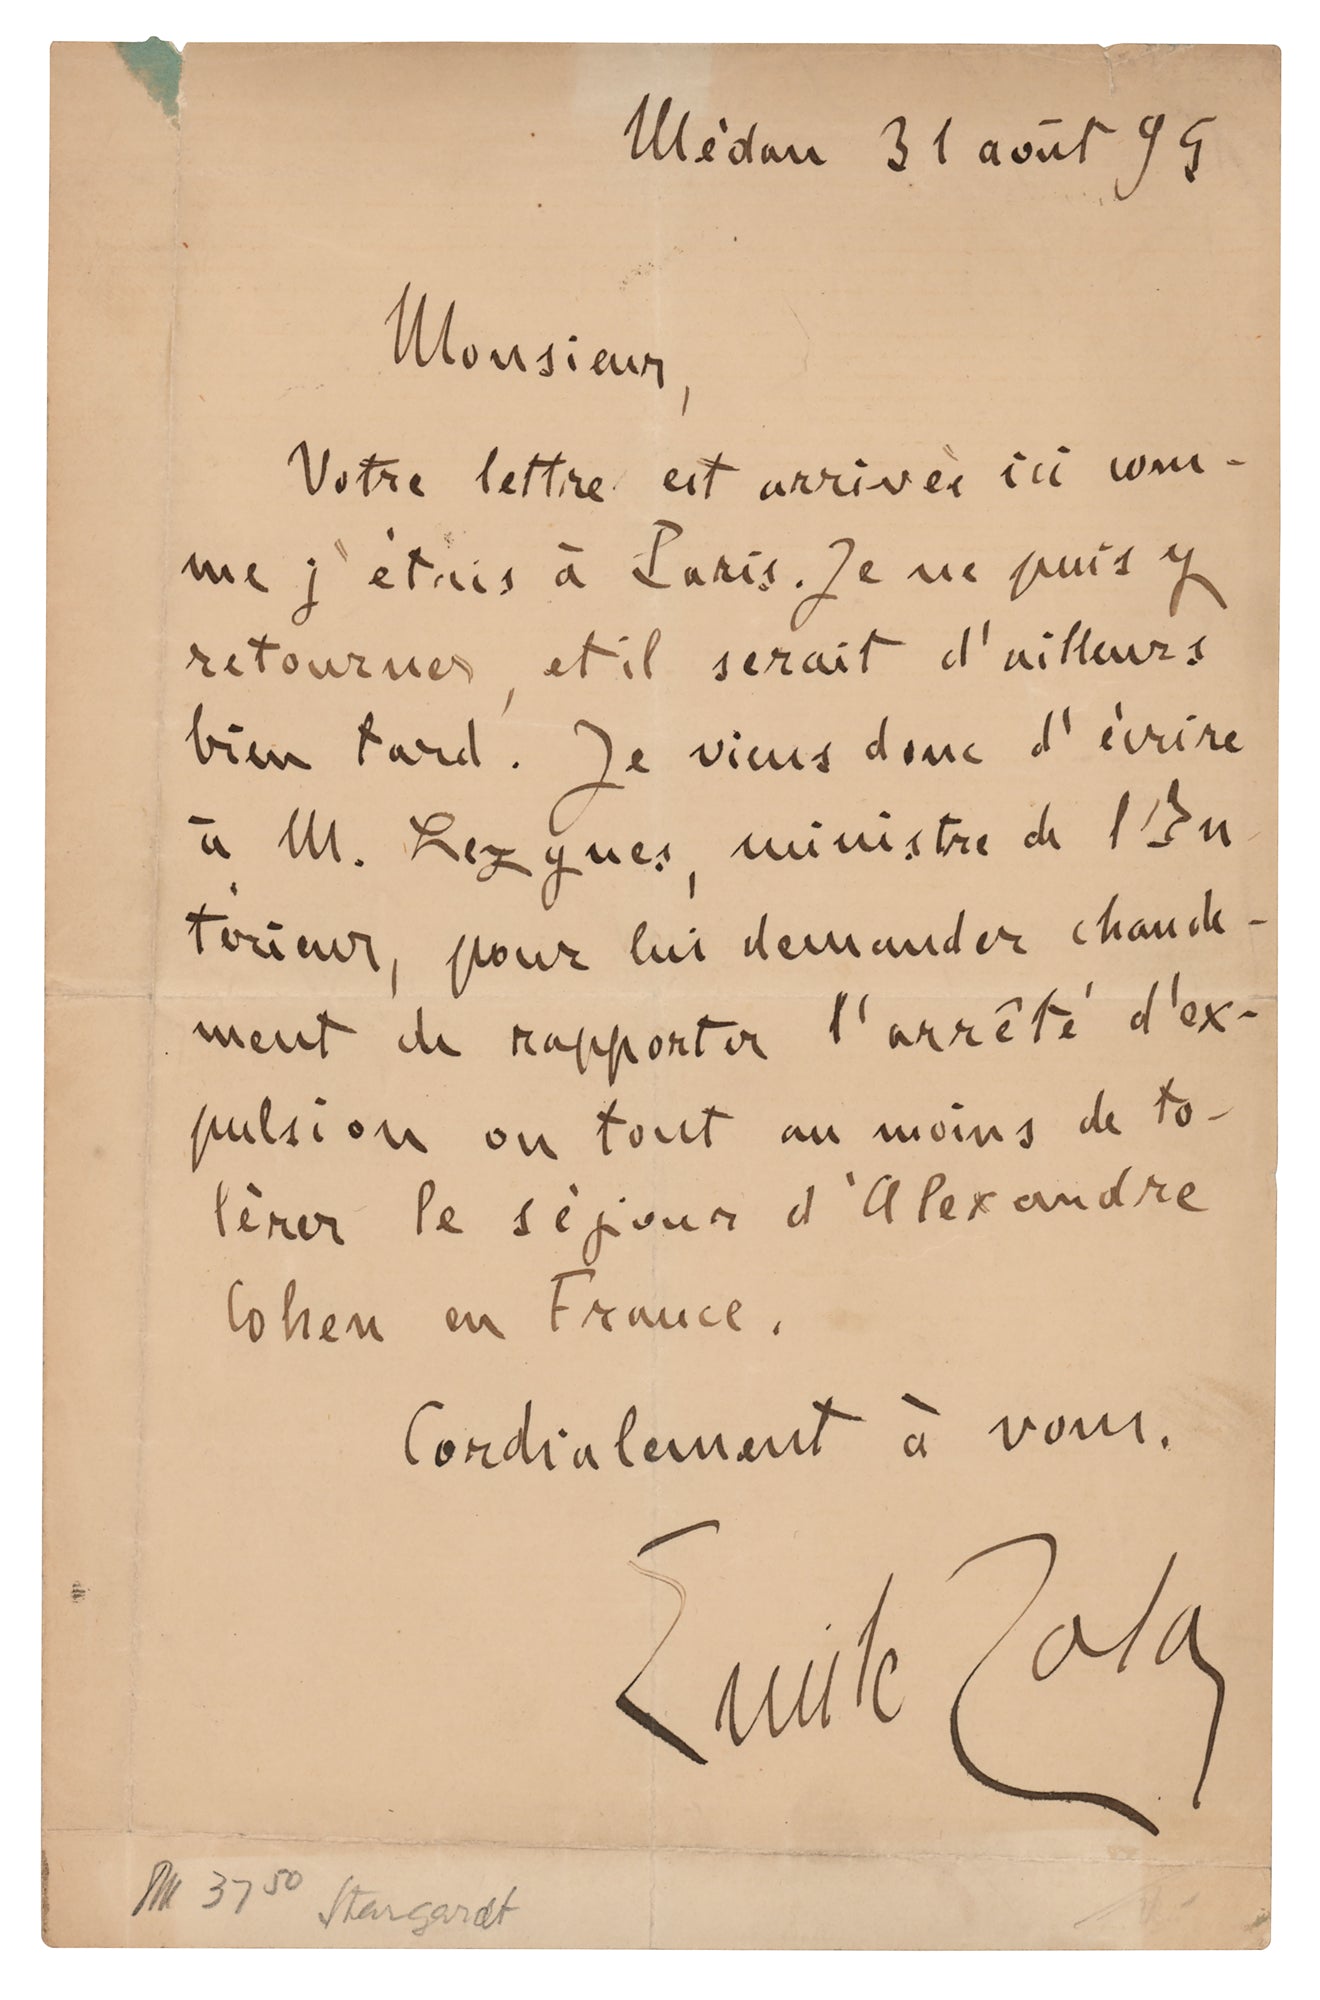 Médan 31 août 95
Monsieur,
Votre lettre est arrivée ici com-
me j'étais à Paris. Je ne puis y
retourner, et il serait d'ailleurs
bien tard. Je viens donc d'écrire
à M. Leygues, ministre de l'In-
térieur, pour lui demander chaude-
ment de rapporter l'arrêté d'ex-
pulsion ou tout au moins de to-
lérer le séjour d'Alexandre
Cohen en France.
Cordialement à vous.
Emile Zola
M 37 50 Stargardt